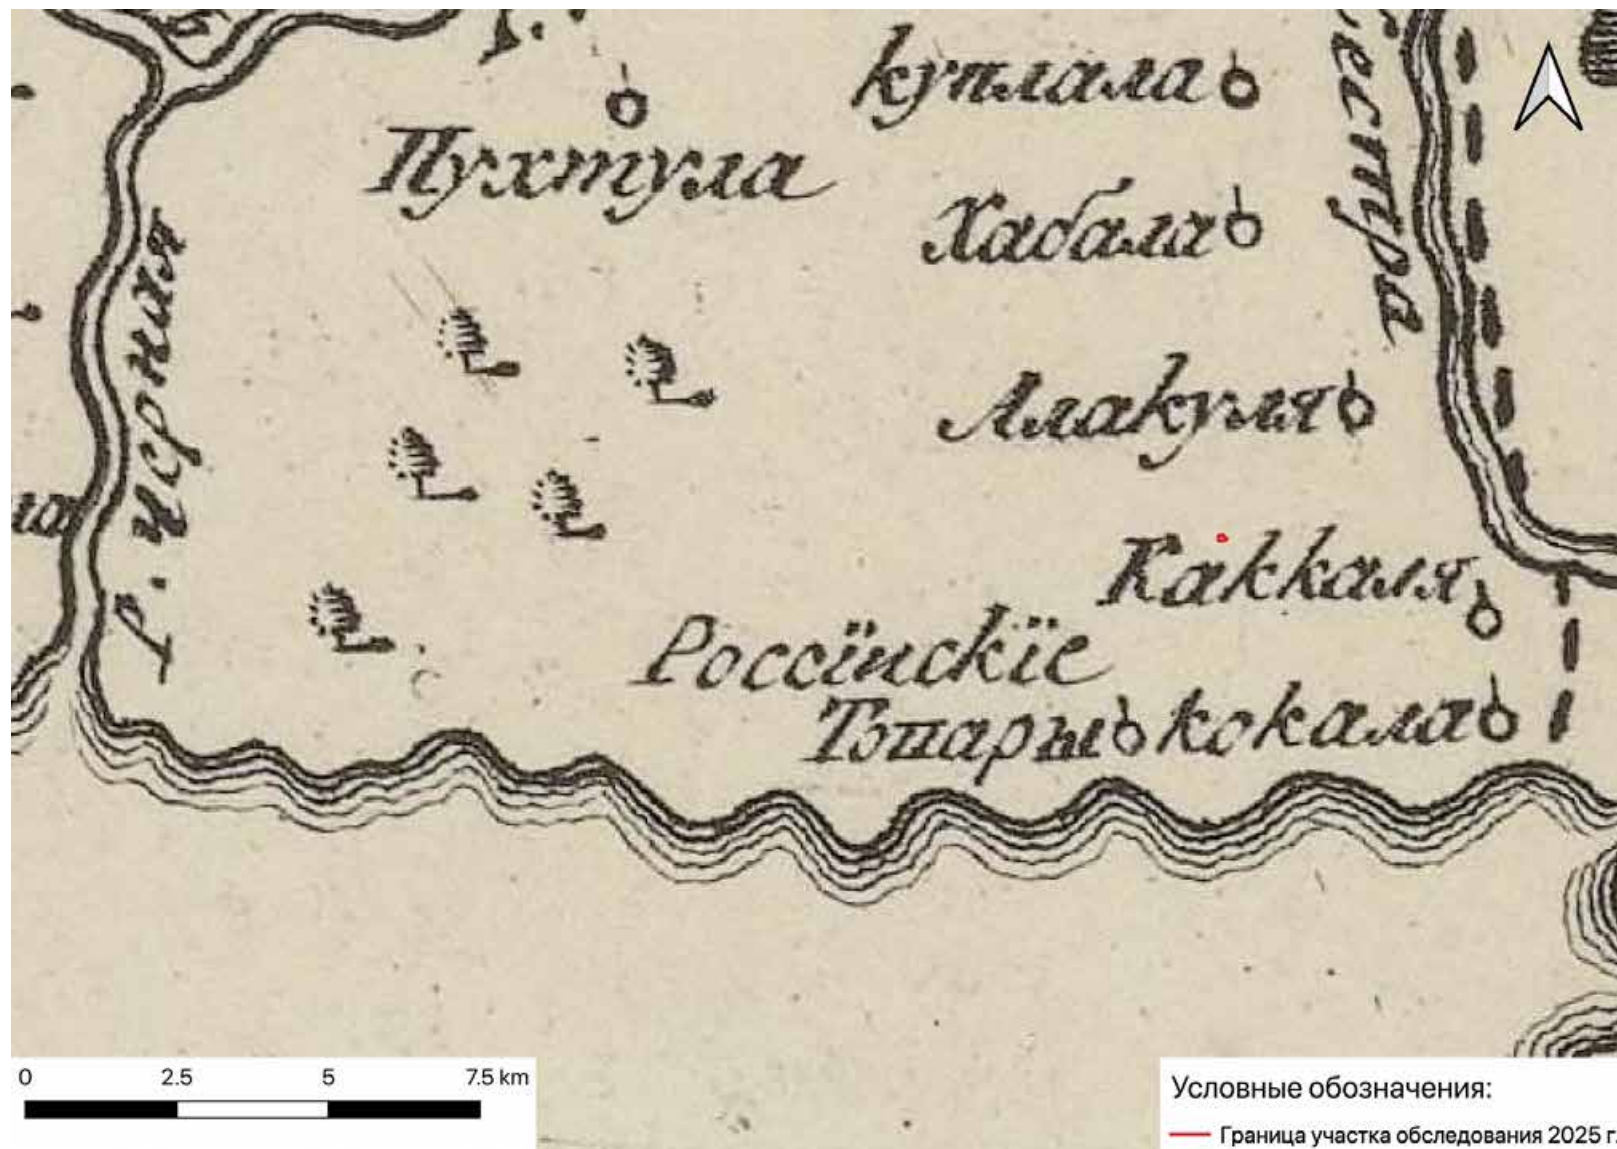 куплала
Пухтула
Хабала
Р. Черная
естра
Алакуля
Каккаля
Россїискїе
Тэпары
кокала
0 2.5 5 7.5 km
Условные обозначения:
Граница участка обследования 2025 г.